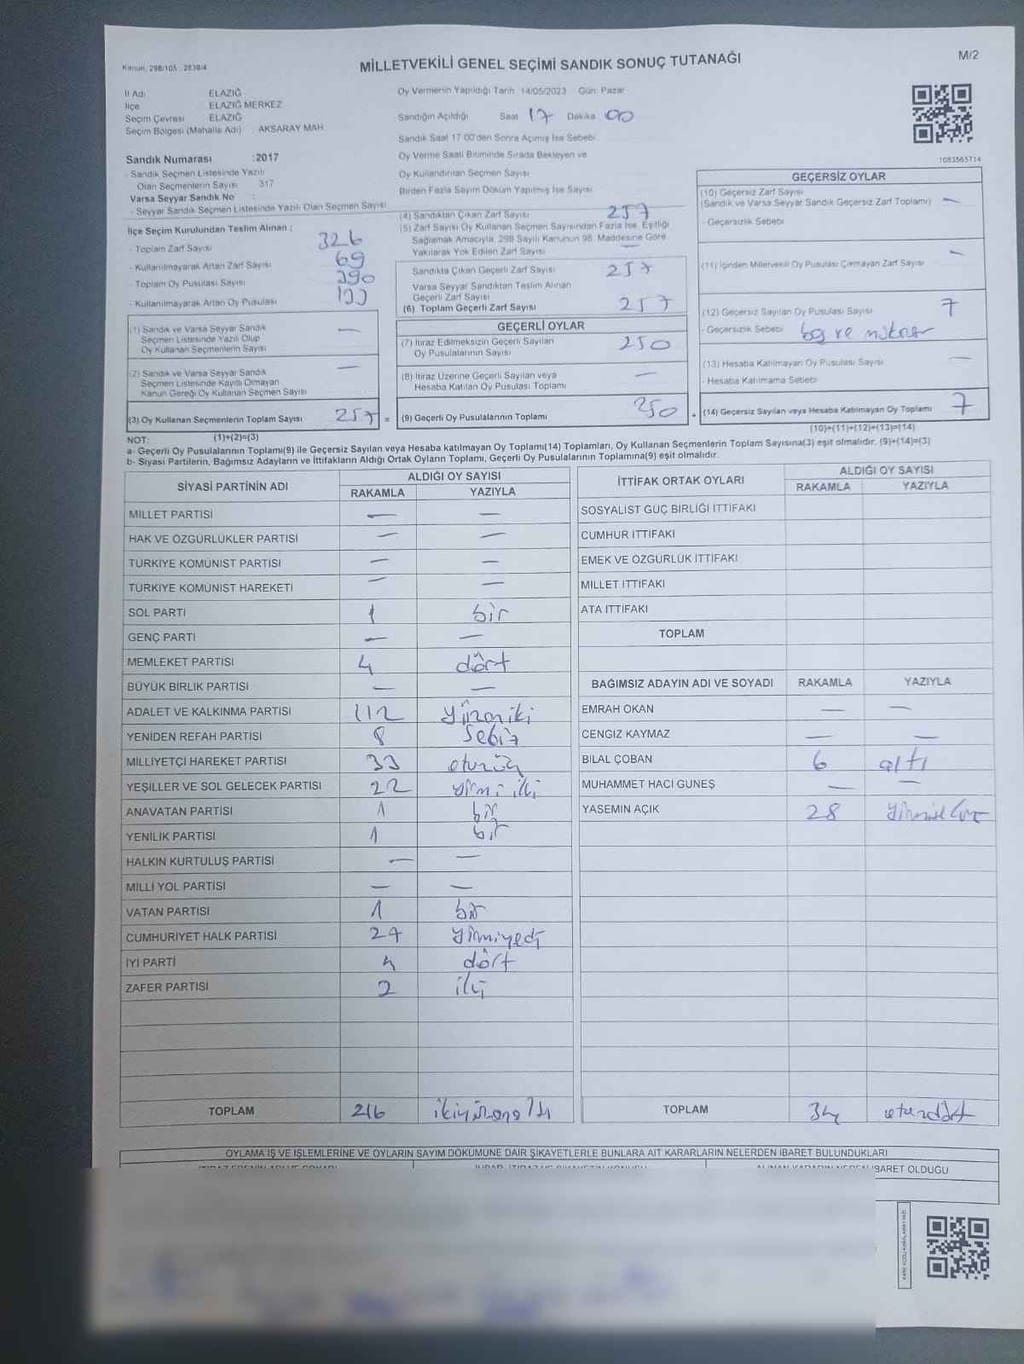 Kanun, 298/105 , 2839/4
MİLLETVEKİLİ GENEL SEÇİMİ SANDIK SONUÇ TUTANAĞI
M/2
İl Adı ELAZIĞ
İlçe ELAZIĞ MERKEZ
Seçim Çevresi ELAZIĞ
Seçim Bölgesi (Mahalle Adı) : AKSARAY MAH.
Oy Vermenin Yapıldığı Tarih :14/05/2023 Gün: Pazar
Sandığın Açıldığı Saat 17 Dakika 00
Sandık Saat 17:00'den Sonra Açılmış İse Sebebi
Oy Verme Saati Bitiminde Sırada Bekleyen ve
Oy Kullandırılan Seçmen Sayısı
Birden Fazla Sayım Döküm Yapılmış İse Sayısı
1083565714
Sandık Numarası :2017
- Sandık Seçmen Listesinde Yazılı
Olan Seçmenlerin Sayısı 317
Varsa Seyyar Sandık No :
- Seyyar Sandık Seçmen Listesinde Yazılı Olan Seçmen Sayısı
İlçe Seçim Kurulundan Teslim Alınan ;
- Toplam Zarf Sayısı 326
- Kullanılmayarak Artan Zarf Sayısı 69
- Toplam Oy Pusulası Sayısı 390
- Kullanılmayarak Artan Oy Pusulası 133
(1) Sandık ve Varsa Seyyar Sandık
Seçmen Listesinde Yazılı Olup
Oy Kullanan Seçmenlerin Sayısı —
(2) Sandık ve Varsa Seyyar Sandık
Seçmen Listesinde Kayıtlı Olmayan
Kanun Gereği Oy Kullanan Seçmen Sayısı —
(3) Oy Kullanan Seçmenlerin Toplam Sayısı 257 =
(1)+(2)=(3)
(4) Sandıktan Çıkan Zarf Sayısı 257
(5) Zarf Sayısı Oy Kullanan Seçmen Sayısından Fazla İse, Eşitliği
Sağlamak Amacıyla, 298 Sayılı Kanunun 98. Maddesine Göre
Yakılarak Yok Edilen Zarf Sayısı —
Sandıkta Çıkan Geçerli Zarf Sayısı 257
Varsa Seyyar Sandıktan Teslim Alınan
Geçerli Zarf Sayısı
(6) Toplam Geçerli Zarf Sayısı 257
GEÇERLİ OYLAR
(7) İtiraz Edilmeksizin Geçerli Sayılan
Oy Pusulalarının Sayısı 250
(8) İtiraz Üzerine Geçerli Sayılan veya
Hesaba Katılan Oy Pusulası Toplamı —
(9) Geçerli Oy Pusulalarının Toplamı 250 +
GEÇERSİZ OYLAR
(10) Geçersiz Zarf Sayısı
(Sandık ve Varsa Seyyar Sandık Geçersiz Zarf Toplamı) —
- Geçersizlik Sebebi
(11) İçinden Milletvekili Oy Pusulası Çıkmayan Zarf Sayısı —
(12) Geçersiz Sayılan Oy Pusulası Sayısı 7
- Geçersizlik Sebebi boş ve mükerrer
(13) Hesaba Katılmayan Oy Pusulası Sayısı —
- Hesaba Katılmama Sebebi
(14) Geçersiz Sayılan veya Hesaba Katılmayan Oy Toplamı 7
(10)+(11)+(12)+(13)=(14)
NOT:
a- Geçerli Oy Pusulalarının Toplamı(9) ile Geçersiz Sayılan veya Hesaba katılmayan Oy Toplamı(14) Toplamları, Oy Kullanan Seçmenlerin Toplam Sayısına(3) eşit olmalıdır. (9)+(14)=(3)
b- Siyasi Partilerin, Bağımsız Adayların ve İttifakların Aldığı Ortak Oyların Toplamı, Geçerli Oy Pusulalarının Toplamına(9) eşit olmalıdır.
SİYASİ PARTİNİN ADI ALDIĞI OY SAYISI
RAKAMLA YAZIYLA
MİLLET PARTİSİ — —
HAK VE ÖZGÜRLÜKLER PARTİSİ — —
TÜRKİYE KOMÜNİST PARTİSİ — —
TÜRKİYE KOMÜNİST HAREKETİ — —
SOL PARTİ 1 bir
GENÇ PARTİ — —
MEMLEKET PARTİSİ 4 dört
BÜYÜK BİRLİK PARTİSİ — —
ADALET VE KALKINMA PARTİSİ 112 yüzoniki
YENİDEN REFAH PARTİSİ 8 sekiz
MİLLİYETÇİ HAREKET PARTİSİ 33 otuzüç
YEŞİLLER VE SOL GELECEK PARTİSİ 22 yirmi iki
ANAVATAN PARTİSİ 1 bir
YENİLİK PARTİSİ 1 bir
HALKIN KURTULUŞ PARTİSİ — —
MİLLİ YOL PARTİSİ — —
VATAN PARTİSİ 1 bir
CUMHURİYET HALK PARTİSİ 27 yirmiyedi
İYİ PARTİ 4 dört
ZAFER PARTİSİ 2 iki
TOPLAM 216 ikiyüzonaltı
İTTİFAK ORTAK OYLARI ALDIĞI OY SAYISI
RAKAMLA YAZIYLA
SOSYALİST GÜÇ BİRLİĞİ İTTİFAKI
CUMHUR İTTİFAKI
EMEK VE ÖZGÜRLÜK İTTİFAKI
MİLLET İTTİFAKI
ATA İTTİFAKI
TOPLAM
BAĞIMSIZ ADAYIN ADI VE SOYADI RAKAMLA YAZIYLA
EMRAH OKAN — —
CENGİZ KAYMAZ — —
BİLAL ÇOBAN 6 altı
MUHAMMET HACI GÜNEŞ — —
YASEMİN AÇIK 28 yirmisekiz
TOPLAM 34 otuzdört
OYLAMA İŞ VE İŞLEMLERİNE VE OYLARIN SAYIM DÖKÜMÜNE DAİR ŞİKAYETLERLE BUNLARA AİT KARARLARIN NELERDEN İBARET BULUNDUKLARI
İBARET OLDUĞU